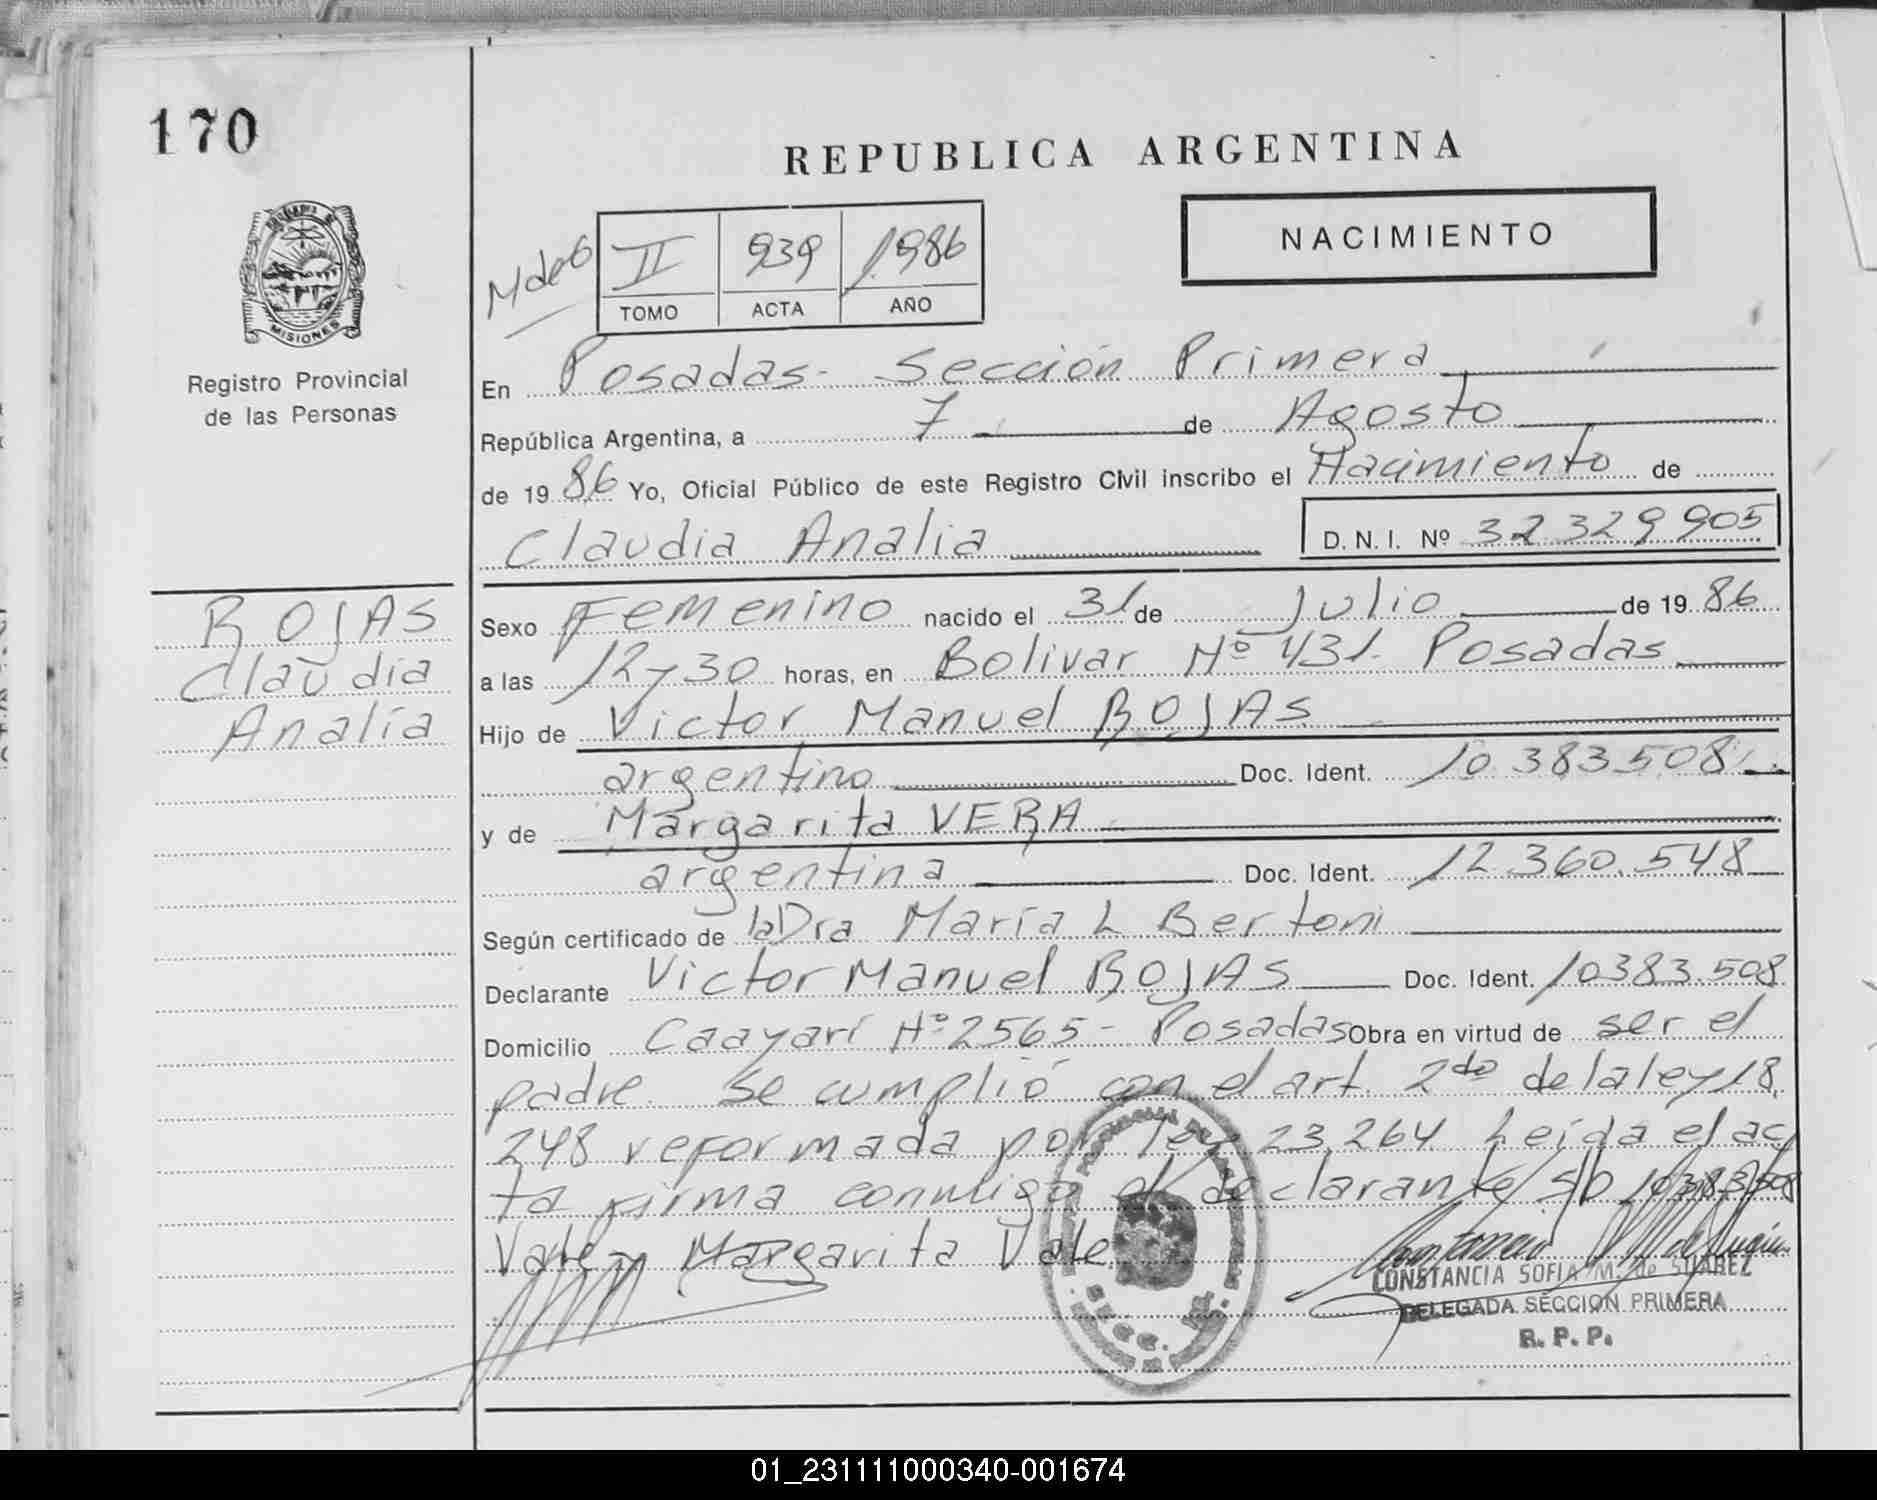 170
REPUBLICA ARGENTINA
NACIMIENTO
II 939 1986
TOMO ACTA AÑO
MISIONES
Registro Provincial
de las Personas
En Posadas- Sección Primera
República Argentina, a 7 de Agosto
de 19 86 Yo, Oficial Público de este Registro Civil inscribo el Nacimiento de
Claudia Analia
D. N. I. Nº 32 329 905
ROJAS
Claudia
Analía
Sexo Femenino nacido el 31 de Julio de 19 86
a las 12 y 30 horas, en Bolivar Nº 431. Posadas
Hijo de Victor Manuel ROJAS
argentino Doc. Ident. 10.383.508
y de Margarita VERA
argentina Doc. Ident. 12.360.548
Según certificado de la Dra María L Bertoni
Declarante Victor Manuel ROJAS Doc. Ident. 10383.508
Domicilio Caayarí Nº 2565- Posadas Obra en virtud de ser el
padre. Se cumplió con el art. 2do de la ley 18.
248 reformada por ley 23.264. Leída el ac
ta firma conmigo el declarante s/b 10.383.508
Vale Margarita Vale
CONSTANCIA SOFIA M. de SUAREZ
DELEGADA SECCION PRIMERA
R. P. P.
01_231111000340-001674